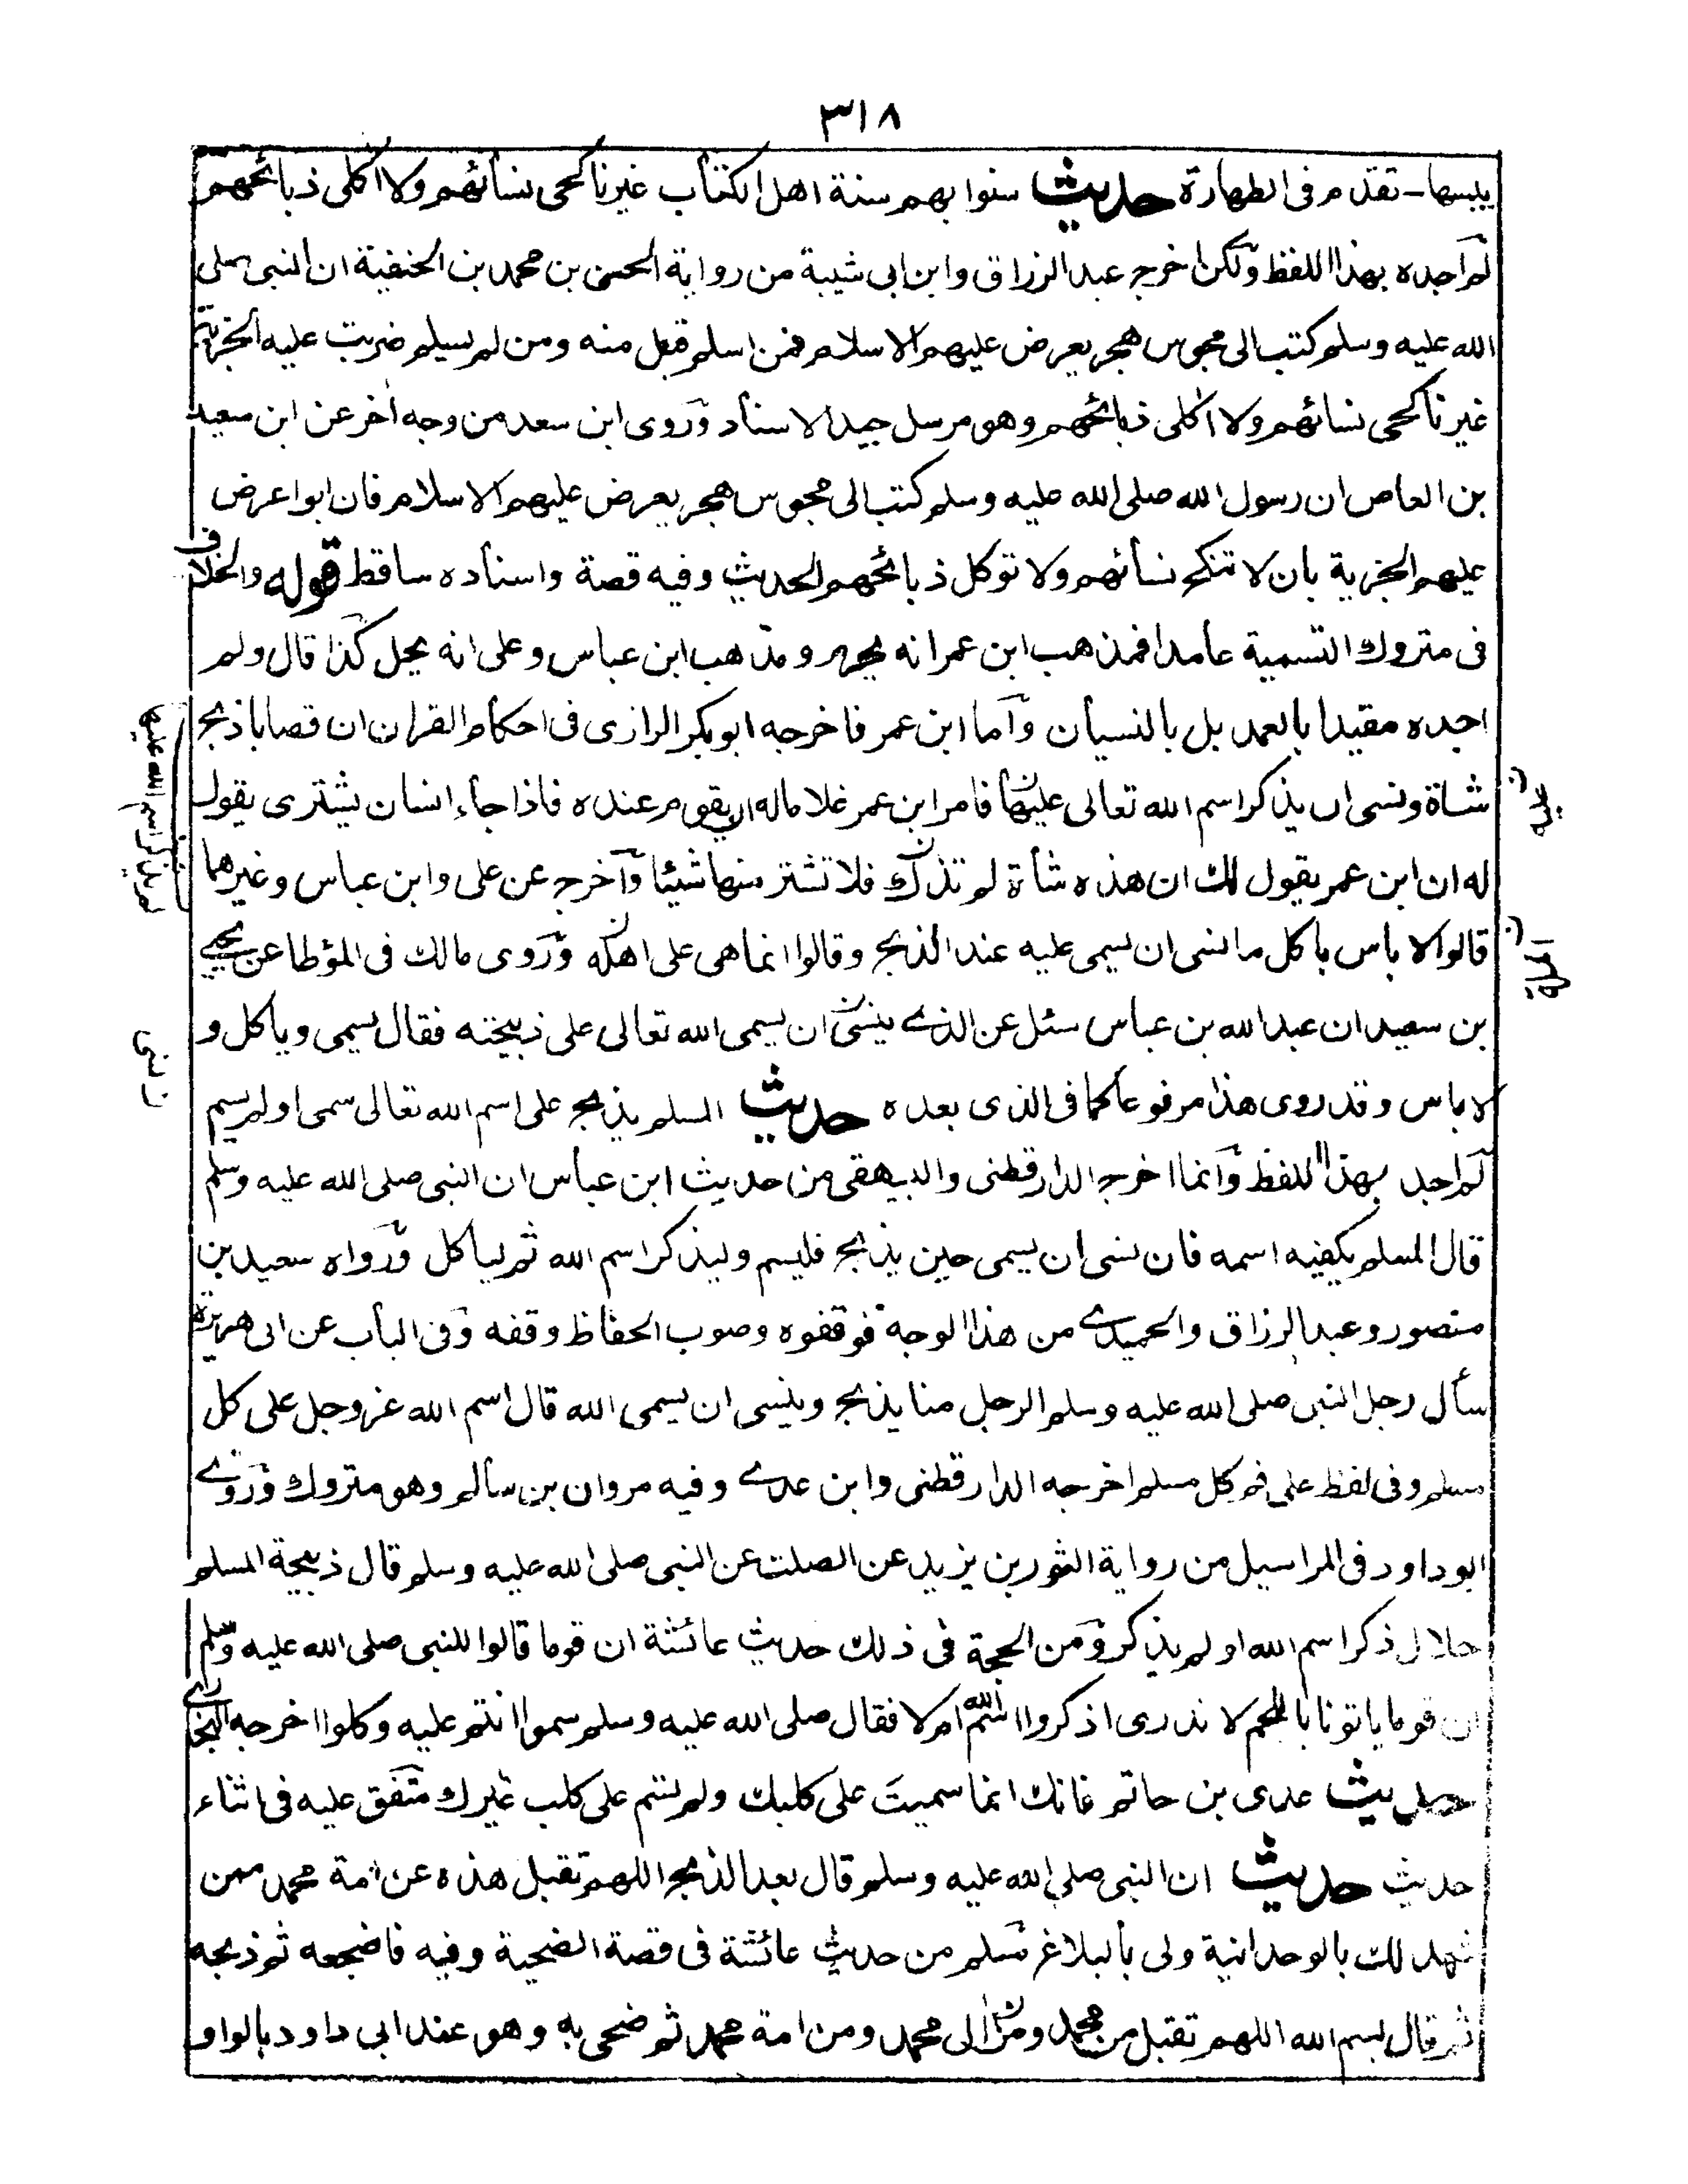 ٣١٨
يلبسها ـ تقدم فى الطهارة حديث سنوا بهم سنة اهل الكتاب غير ناكحى نسائهم ولا اكلى ذبائحهم
لم اجده بهذا اللفظ ولكن اخرجه عبد الرزاق وابن ابى شيبة من رواية الحسن بن محمد بن الحنفية ان النبى صلى
الله عليه وسلم كتب الى مجوس هجر يعرض عليهم الاسلام فمن اسلم قبل منه ومن لم يسلم ضربت عليه الجزية
غير ناكحى نسائهم ولا اكلى ذبائحهم وهو مرسل جيد الاسناد وروى ابن سعد من وجه اخر عن ابن سعيد
بن العاص ان رسول الله صلى الله عليه وسلم كتب الى مجوس هجر يعرض عليهم الاسلام فان ابوا عرض
عليهم الجزية بان لا تنكح نسائهم ولا توكل ذبائحهم الحديث وفيه قصة واسناده ساقط قوله والخلاف
فى متروك التسمية عامدا فمذهب ابن عمر انه يحرم ومذهب ابن عباس وعلى انه يحل كذا قال ولم
اجده مقيدا بالعمد بل بالنسيان واما ابن عمر فاخرجه ابو بكر الرازى فى احكام القران ان قصابا ذبح
شاة ونسى ان يذكر اسم الله تعالى عليها فامر ابن عمر غلاما له ان يقوم عنده فاذا جاء انسان يشترى يقول
له ان ابن عمر يقول لك ان هذه شاة لم تذك فلا تشتر منها شيئا واخرج عن على وابن عباس وغيرهما
قالوا لا باس باكل ما نسى ان يسمى عليه عند الذبح وقالوا انما هى على اهله وروى مالك فى المؤطا عن يحيى
بن سعيد ان عبد الله بن عباس سئل عن الذى ينسى ان يسمى الله تعالى على ذبيحته فقال يسمى وياكل و
لا باس وقد روى هذا مرفوعا كما فى الذى بعده حديث المسلم يذبح على اسم الله تعالى سمى او لم يسم
لم اجد بهذا اللفظ وانما اخرجه الدارقطنى والبيهقى من حديث ابن عباس ان النبى صلى الله عليه وسلم
قال المسلم يكفيه اسمه فان نسى ان يسمى حين يذبح فليسم وليذكر اسم الله ثم لياكل ورواه سعيد بن
منصور وعبد الرزاق والحميدى من هذا الوجه فوقفوه وصوب الحفاظ وقفه وفى الباب عن ابى هريرة
سأل رجل النبى صلى الله عليه وسلم الرجل منا يذبح وينسى ان يسمى الله قال اسم الله عز وجل على كل
مسلم وفى لفظ على فم كل مسلم اخرجه الدارقطنى وابن عدى وفيه مروان بن سالم وهو متروك وروى
ابو داود فى المراسيل من رواية الثور بن يزيد عن الصلت عن النبى صلى الله عليه وسلم قال ذبيحة المسلم
حلال ذكر اسم الله او لم يذكر ومن الحجة فى ذلك حديث عائشة ان قوما قالوا للنبى صلى الله عليه وسلم
ان قوما ياتونا باللحم لا ندرى اذكروا اسم الله ام لا فقال صلى الله عليه وسلم سموا انتم عليه وكلوا اخرجه البخارى
حديث عدى بن حاتم فانك انما سميت على كلبك ولم تسم على كلب غيرك متفق عليه فى اثناء
حديث حديث ان النبى صلى الله عليه وسلم قال بعد الذبح اللهم تقبل هذه عن امة محمد ممن
شهد لك بالوحدانية ولى بالبلاغ مسلم من حديث عائشة فى قصة الضحية وفيه فاضجعه ثم ذبحه
ثم قال بسم الله اللهم تقبل من محمد ومن ال محمد ومن امة محمد ثم ضحى به وهو عند ابى داود بالواو
عليه
لم يذكر اسم الله عليه
ن نسى